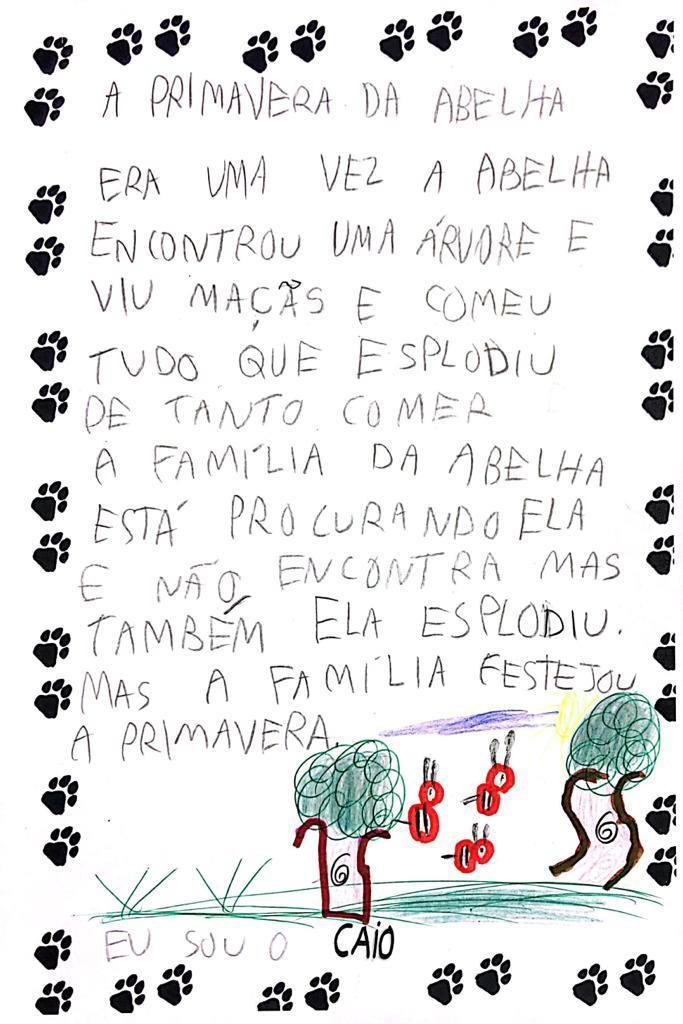 A PRIMAVERA DA ABELHA
ERA UMA VEZ A ABELHA
ENCONTROU UMA ÁRVORE E
VIU MAÇÃS E COMEU
TUDO QUE ESPLODIU
DE TANTO COMER
A FAMÍLIA DA ABELHA
ESTÁ PROCURANDO ELA
E NÃO ENCONTRA MAS
TAMBÉM ELA ESPLODIU.
MAS A FAMÍLIA FESTEJOU
A PRIMAVERA.
EU SOU O CAIO